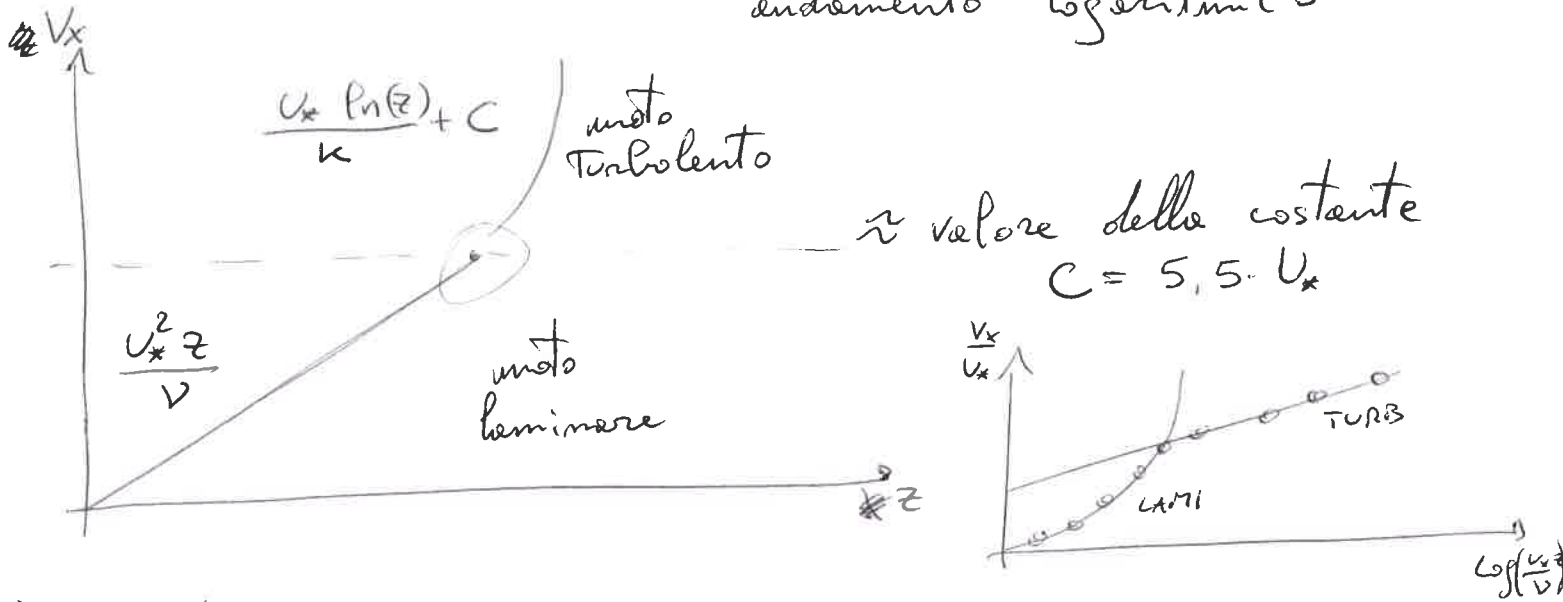 andamento logaritmico
Vx
U* ln(z) / k + C
moto
Turbolento
≈ valore della costante
C = 5,5 · U*
U*² z / ν
moto
laminare
z
Vx / U*
TURB
LAMI
Log(U* z / ν)